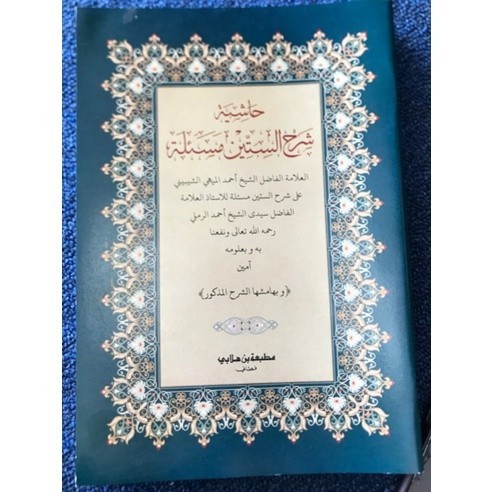 حاشية
شرح الستين مسئلة
العلامة الفاضل الشيخ أحمد الميهي الشيبيني
على شرح الستين مسئلة للاستاذ العلامة
الفاضل سيدى الشيخ أحمد الرملي
رحمه الله تعالى ونفعنا
به وبعلومه
آمين
﴿وبهامشها الشرح المذكور﴾
مطبعة بن هلابي
فطاني